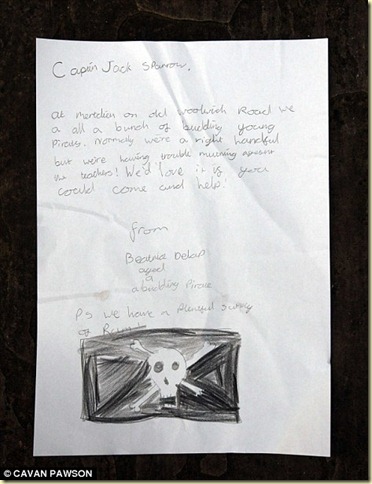 Captin Jack Sparrow,
At meridian on old woolwich Road we
a all a bunch of budding young
Pirates. Normaly we're a right handful
but we're having trouble mutining against
the teachers! We'd love it if you
could come and help!
from
Beatrice Delap
aged
9
a budding Pirate
P.S we have a Plentiful Supply
of
© CAVAN PAWSON